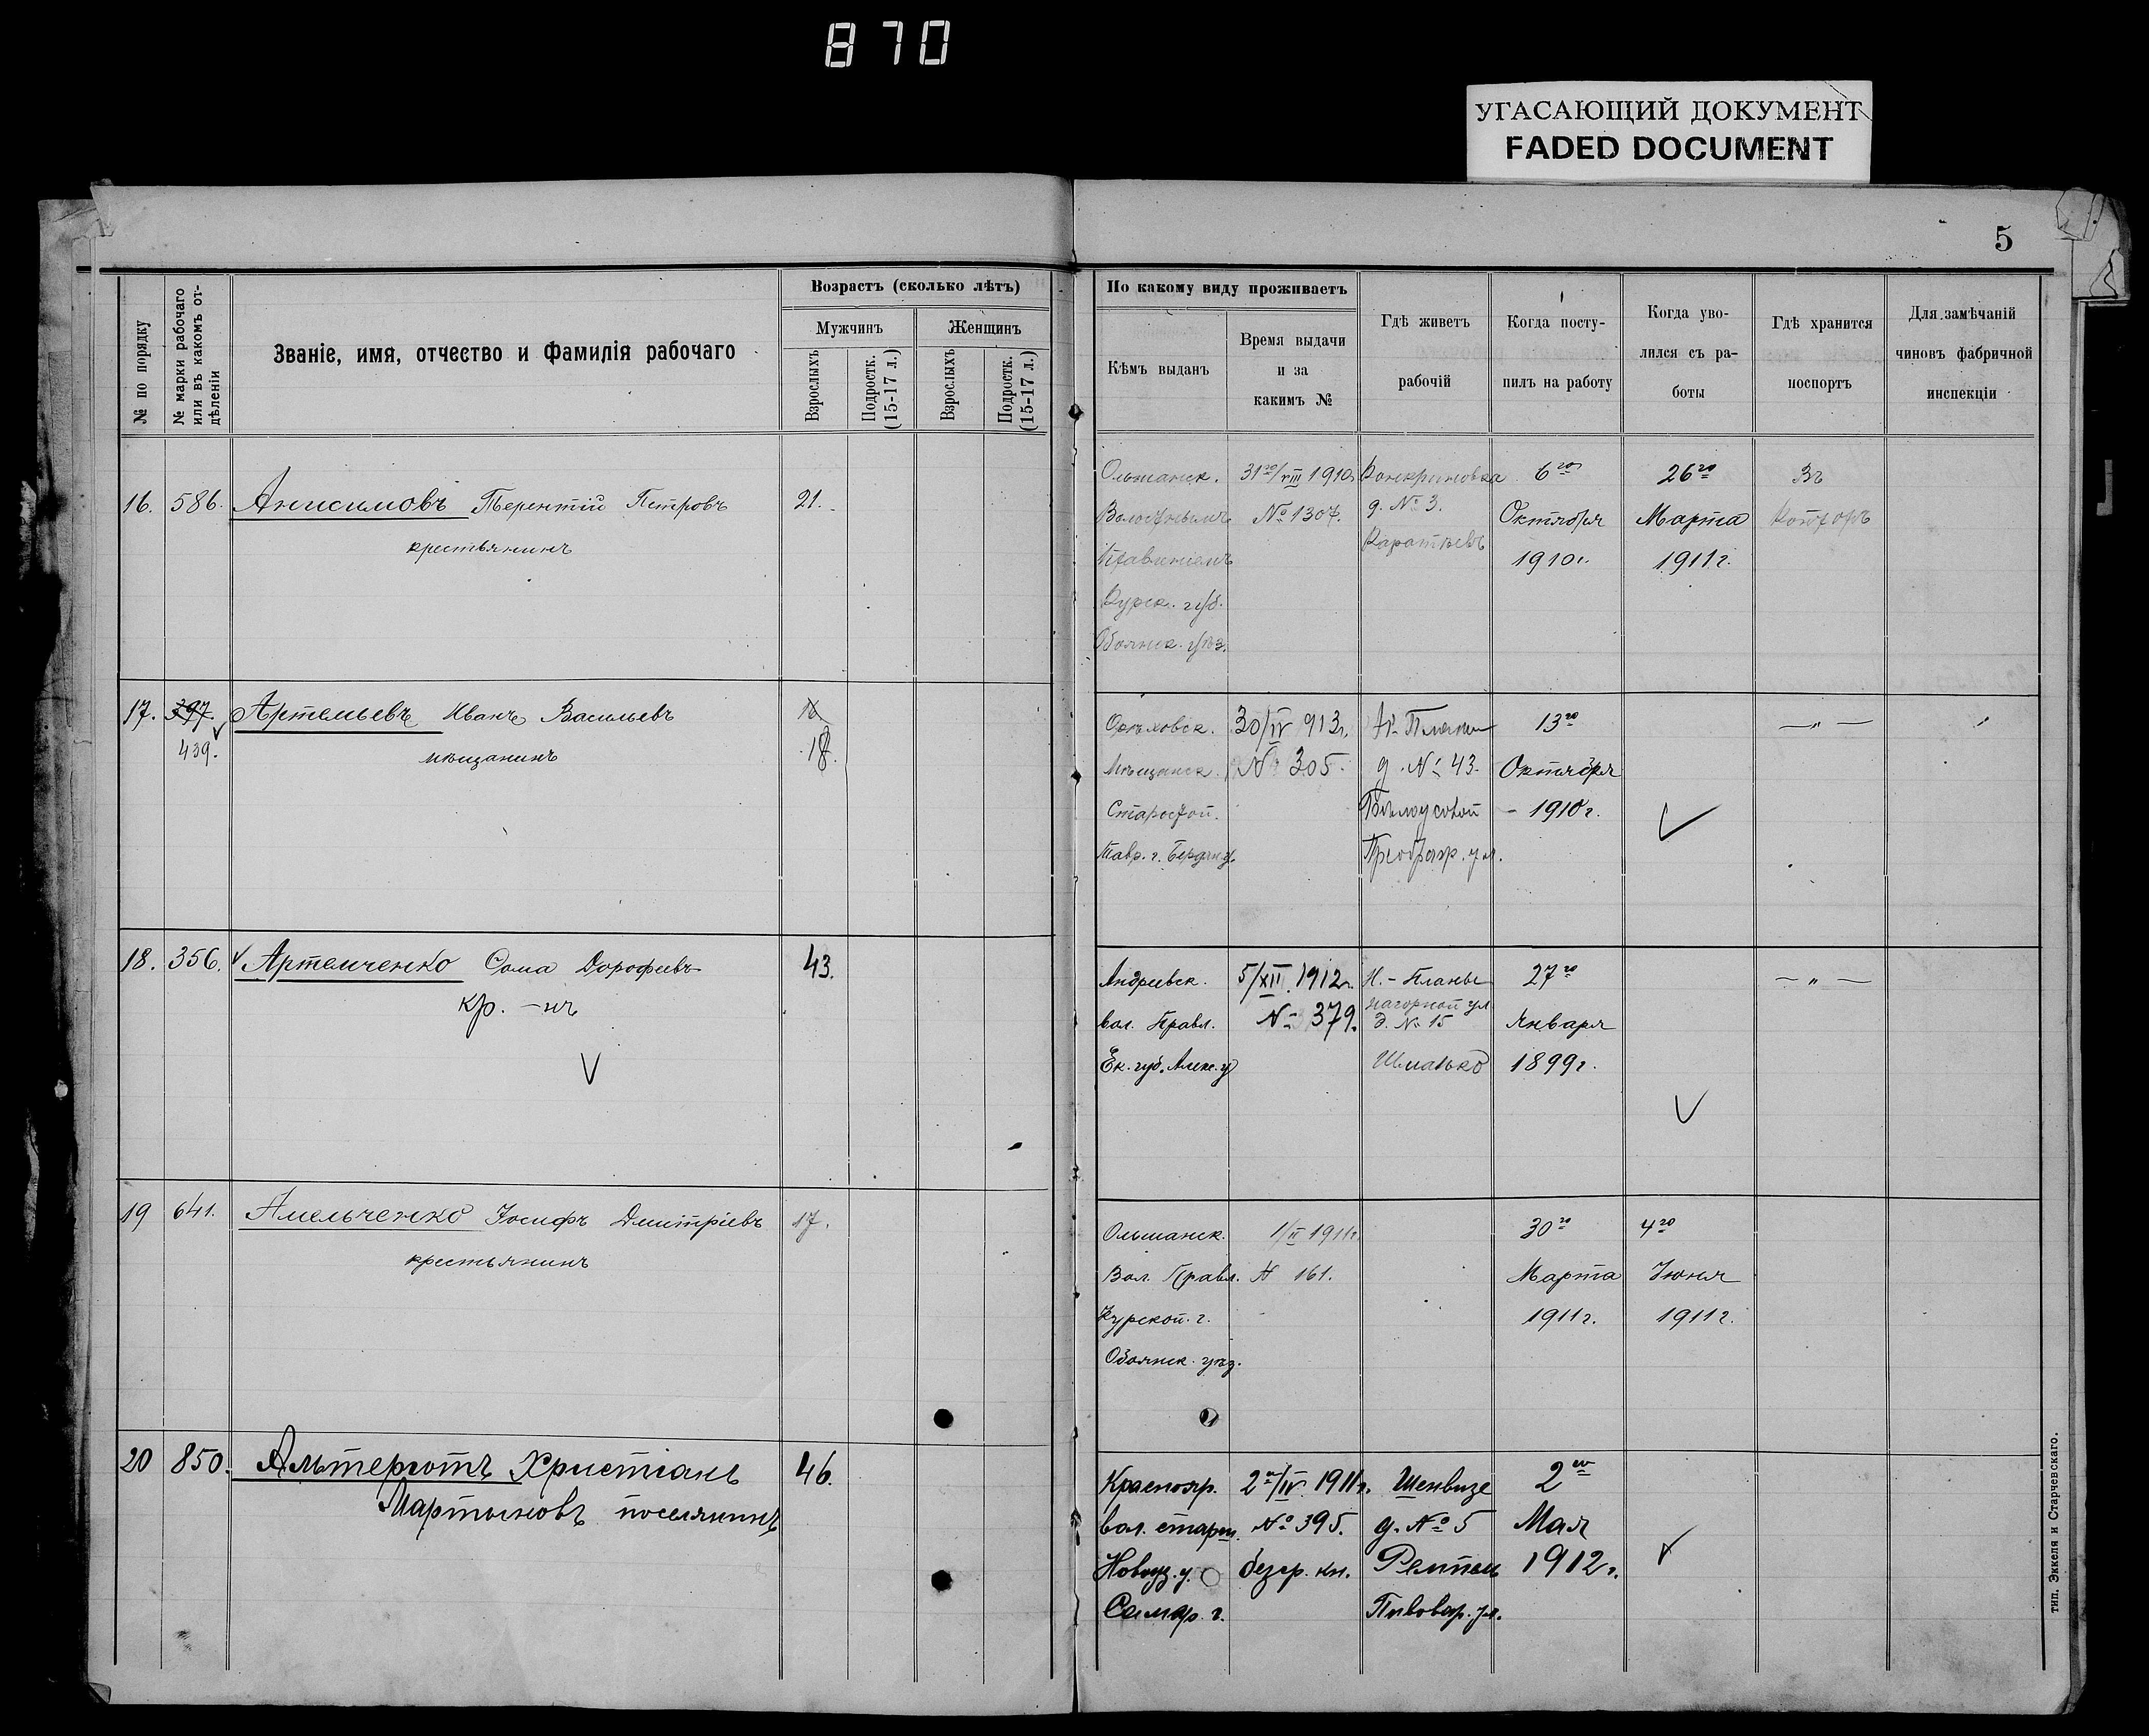 870
УГАСАЮЩИЙ ДОКУМЕНТ
FADED DOCUMENT
5
№ по порядку
№ марки рабочаго или въ какомъ от-дѣленіи
Званіе, имя, отчество и фамилія рабочаго
Возрастъ (сколько лѣтъ)
Мужчинъ
Женщинъ
Взрослыхъ
Подростк. (15-17 л.)
Взрослыхъ
Подростк. (15-17 л.)
По какому виду проживаетъ
Кѣмъ выданъ
Время выдачи
и за
какимъ №
Гдѣ живетъ
рабочій
Когда посту-
пилъ на работу
Когда уво-
лился съ ра-
боты
Гдѣ хранится
поспортъ
Для замѣчаній
чиновъ фабричной
инспекціи
16. 586. Анисимовъ Терентій Петровъ 21.
крестьянинъ
Ольшанск. 31го/VIII 1910г. 6го 26го Въ
Волостнымъ № 1307. д. № 3. Октября Марта Конторѣ
Правленіемъ 1910г. 1911г.
Курск. губ.
Обоянск. уѣз.
17. 397. Артемьевъ Иванъ Васильевъ 16
439. мѣщанинъ 18.
Орѣховск. 30/IV 913г. 13го — „ —
Мѣщанск. № 305. д. № 43. Октября
Старостой. Бѣлоусовой - 1910г.
Тавр. г. Бердян. у. Преображ. ул.
18. 356. Артемченко Фома Дорофеевъ 43.
кр.-нъ
Андреевск. 5/XII 1912г. Н.-Планы 27го — „ —
нагорной ул
вол. Правл. № 379. д. № 15 Января
Ек. губ. Алекс. у 1899г.
19 641. Амельченко Іосифъ Дмитріевъ 17.
крестьянинъ
Ольшанск. 1/II 1911г. 30го 4го
Вол. Правл. № 161. Марта Іюня
Курской. г. 1911г. 1911г.
Обоянск. уѣзд.
20 850. Альтерготъ Христіанъ 46.
Мартыновъ поселянинъ
Краснояр. 2го/IV 1911г. Шенвизе 2го
вол. старш. № 395. д. № 5 Мая
Новоуз. у. безср. кн. 1912г.
Самар. г. Пивовар. ул.
тип. Эккеля и Старчевскаго.